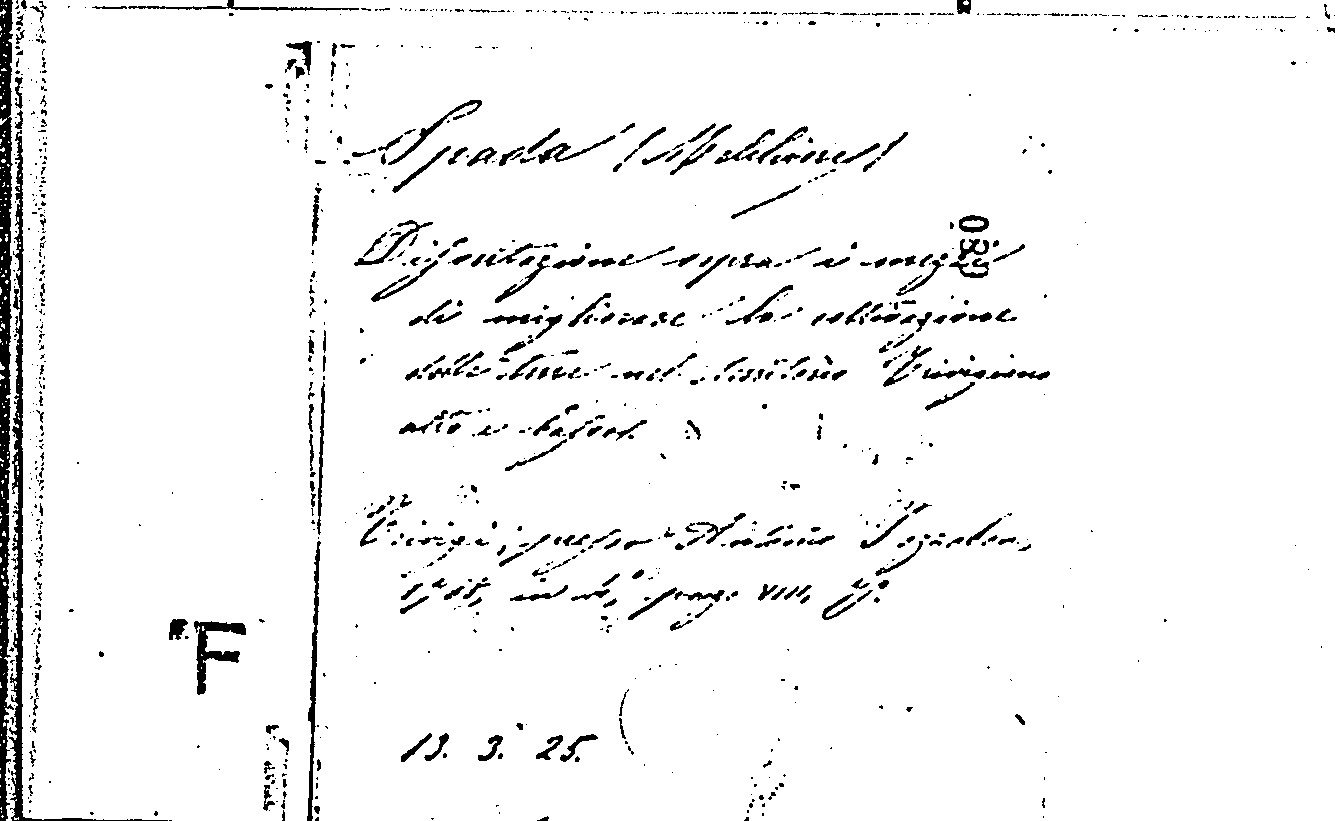 Spada (Medelione)
Dissertazione sopra i mezzi
di migliorare la coltivazione
delle terre nel territorio Trivigiano
alto e basso.
Trivigi, presso Antonio
in 4.° pag. VIII,
13. 3. 25.
F